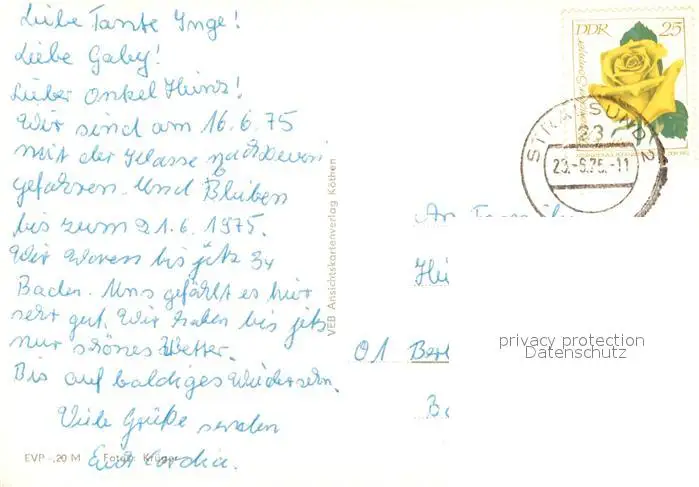 Liebe Tante Inge!
Liebe Gaby!
Lieber Onkel Heinz!
Wir sind am 16.6.75
mit der Klasse nach
gefahren. Und Bleiben
bis zum 21.6.1975.
Wir waren bis jetz 3x
Baden. Uns gefählt es hier
sehr gut. Wir haben bis jetz
nur schönes Wetter.
Bis auf baldiges Wiedersehn.
Viele Grüße senden
EVP -,20 M Fotos: Krüger
VEB Ansichtskartenverlag Köthen
DDR 25
STRALSUND 2
23
23.-6.75.-11
An
01
privacy protection
Datenschutz